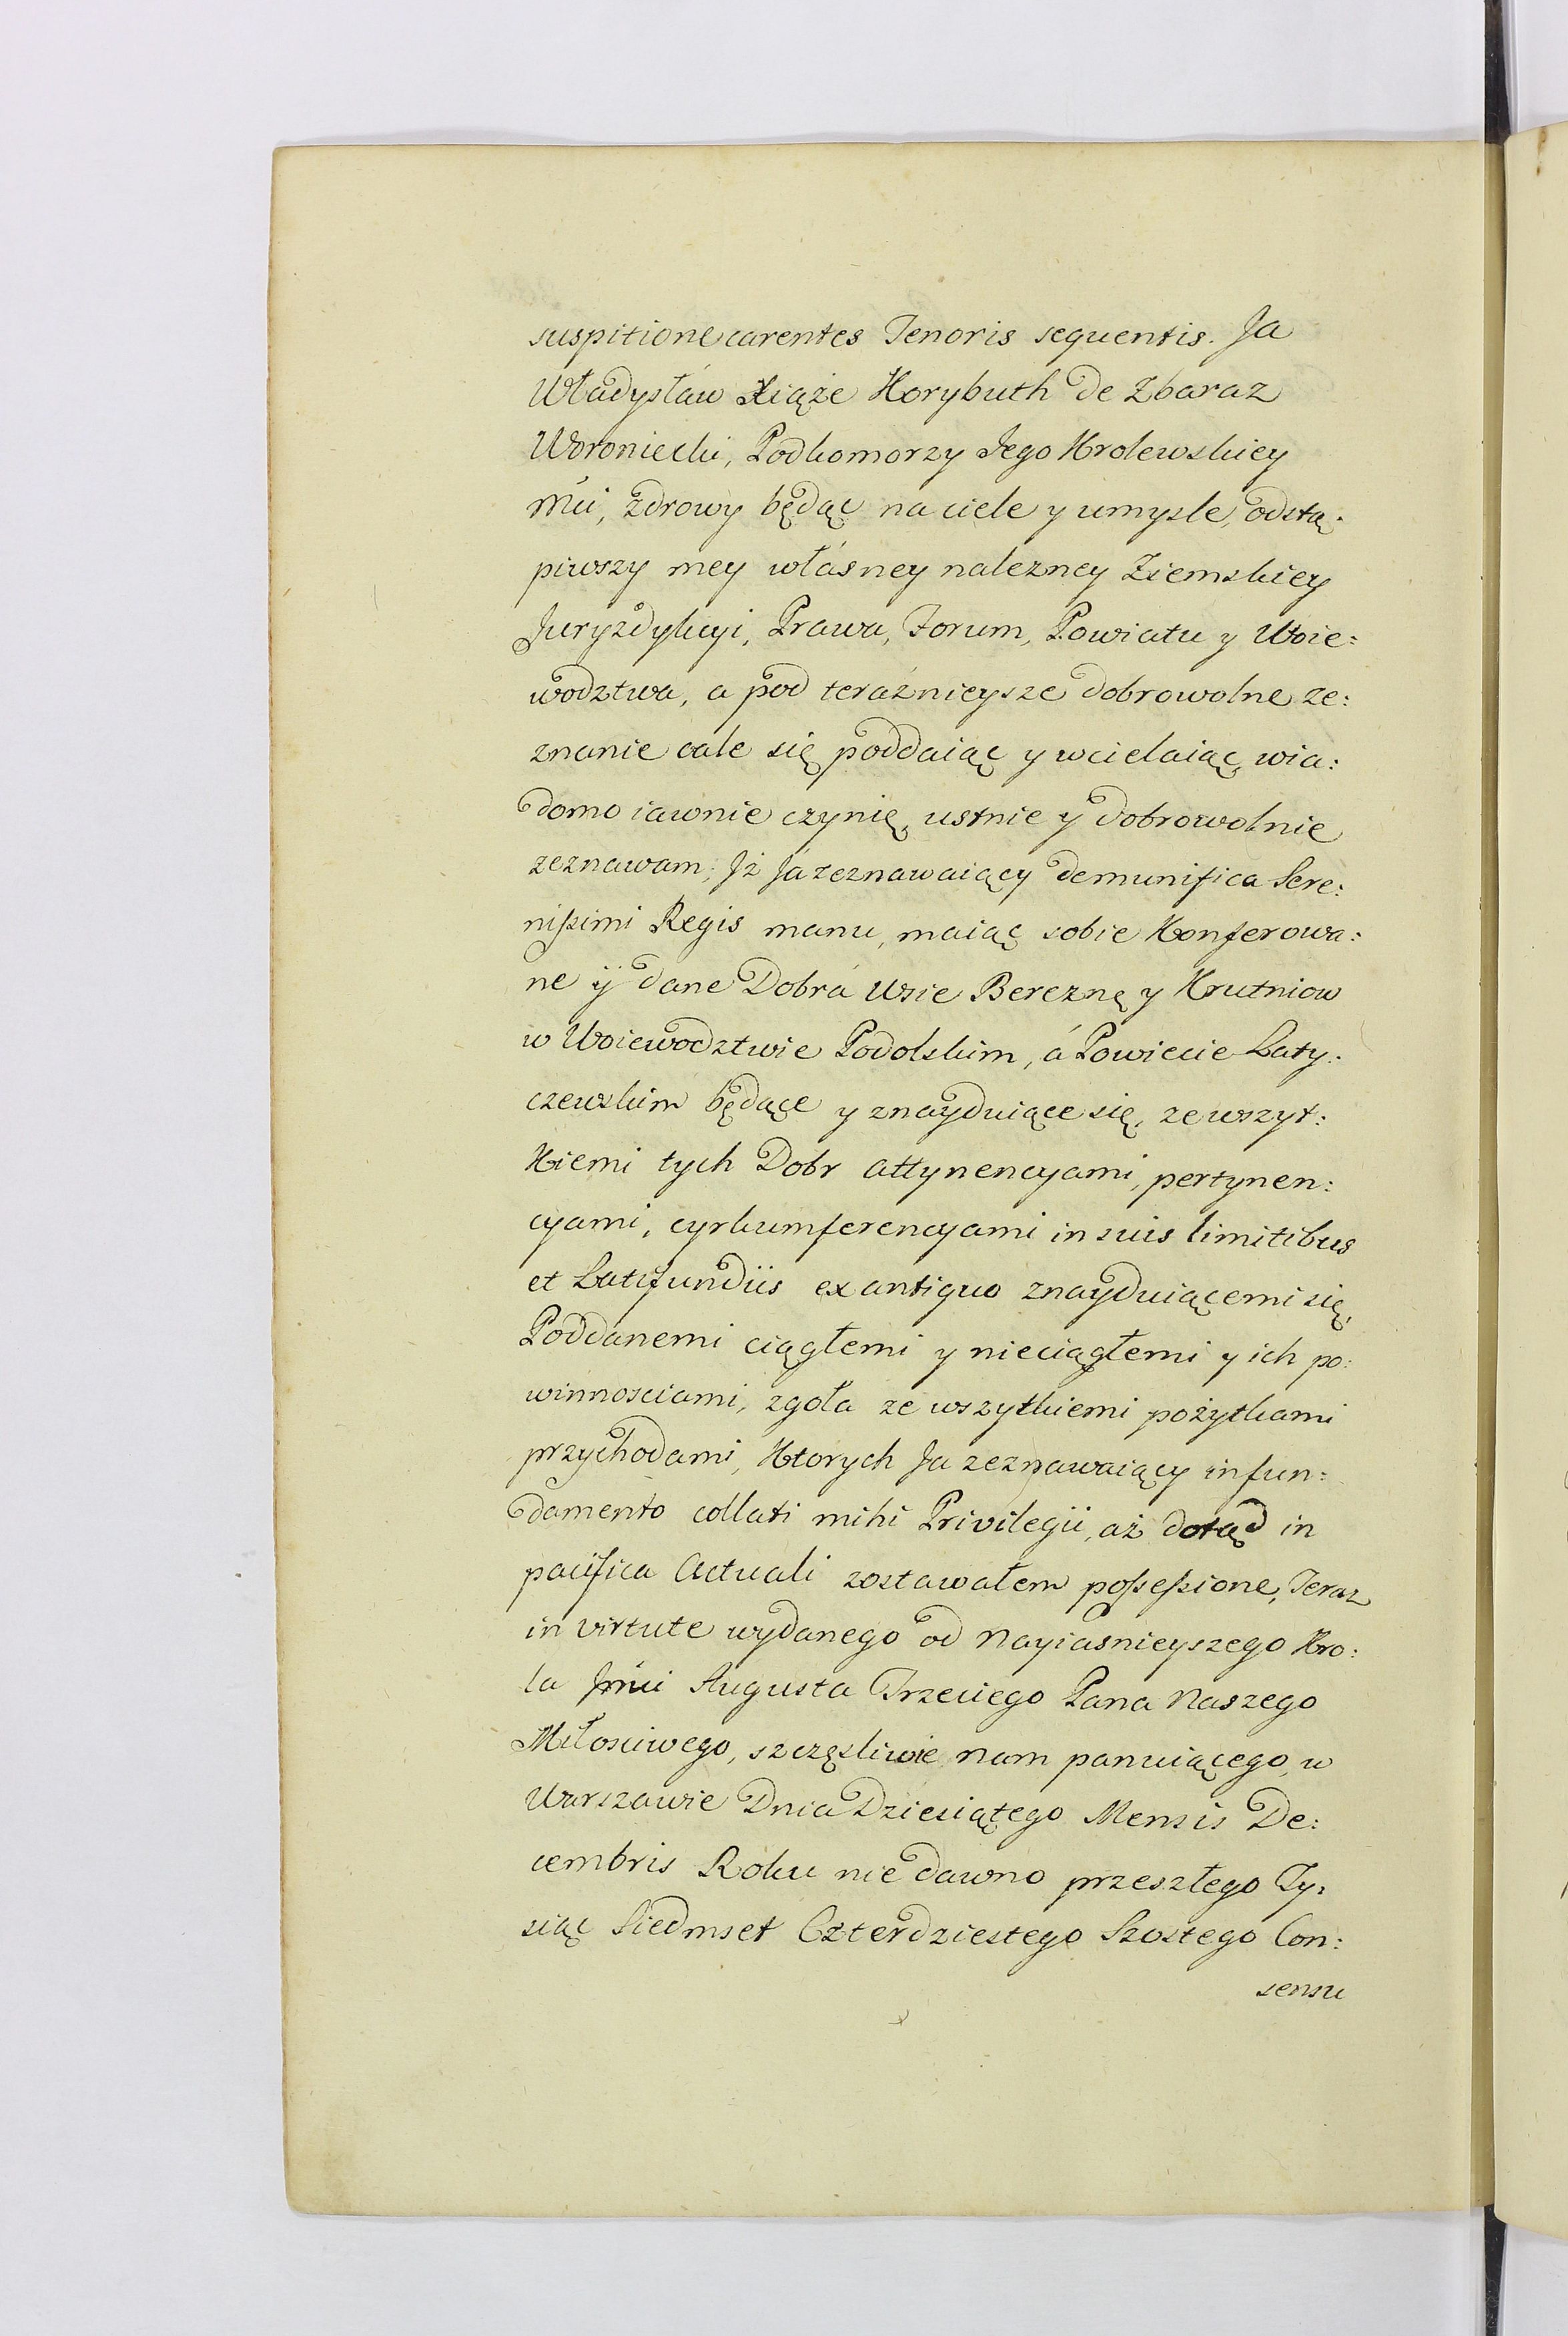 suspitione carentes Tenoris sequentis. Ja
Władysław Xiąże Korybuth de Zbaraz
Woroniecki, Podkomorzy Jego Krolewskiey
Mći, zdrowy będąc na ciele y umysle, odstą:
piwszy mey własney nalezney Ziemskiey
Juryzdykcyi, Prawa, Forum, Powiatu y Woie:
wodztwa, a pod teraźnieysze dobrowolne ze:
znanie cale się poddaiąc y wcielaiąc, wia:
domo iawnie czynię, ustnie y dobrowolnie
zeznawam; Jż Ja zeznawaiący de munifica Sere:
nißimi Regis manu, maiąc sobie Konferowa:
ne ÿ dane Dobrá Wsie Bereznę y Krutniow
w Woiewodztwie Podolskim, á Powiecie Laty:
czewskim będące y znayduiące się, ze wszyt:
kiemi tych Dobr attynencyami, pertynen:
cyami, cyrkumferencyami in suis limitibus
et Latifundiis ex antiquo znayduiącemi się,
Poddanemi ciągłemi y nieciągłemi y ich po:
winnosciami, zgoła ze wszytkiemi pożytkami
przychodami, Ktorych Ja zeznawaiący in fun:
damento collati mihi Privilegii, aż dotąd in
pacifica Actuali zostawałem poßeßione, Teraz
in virtute wydanego od Nayiasnieyszego Kro:
la Jmći Augusta Trzeciego Pana Naszego
Miłosciwego, szczęsliwie nam panuiącego, w
Warszawie Dnia Dziesiątego Mensis De:
cembris Roku nie dawno przeszłego Ty:
siąc Siedmset Czterdziestego Szostego Con:
sensu